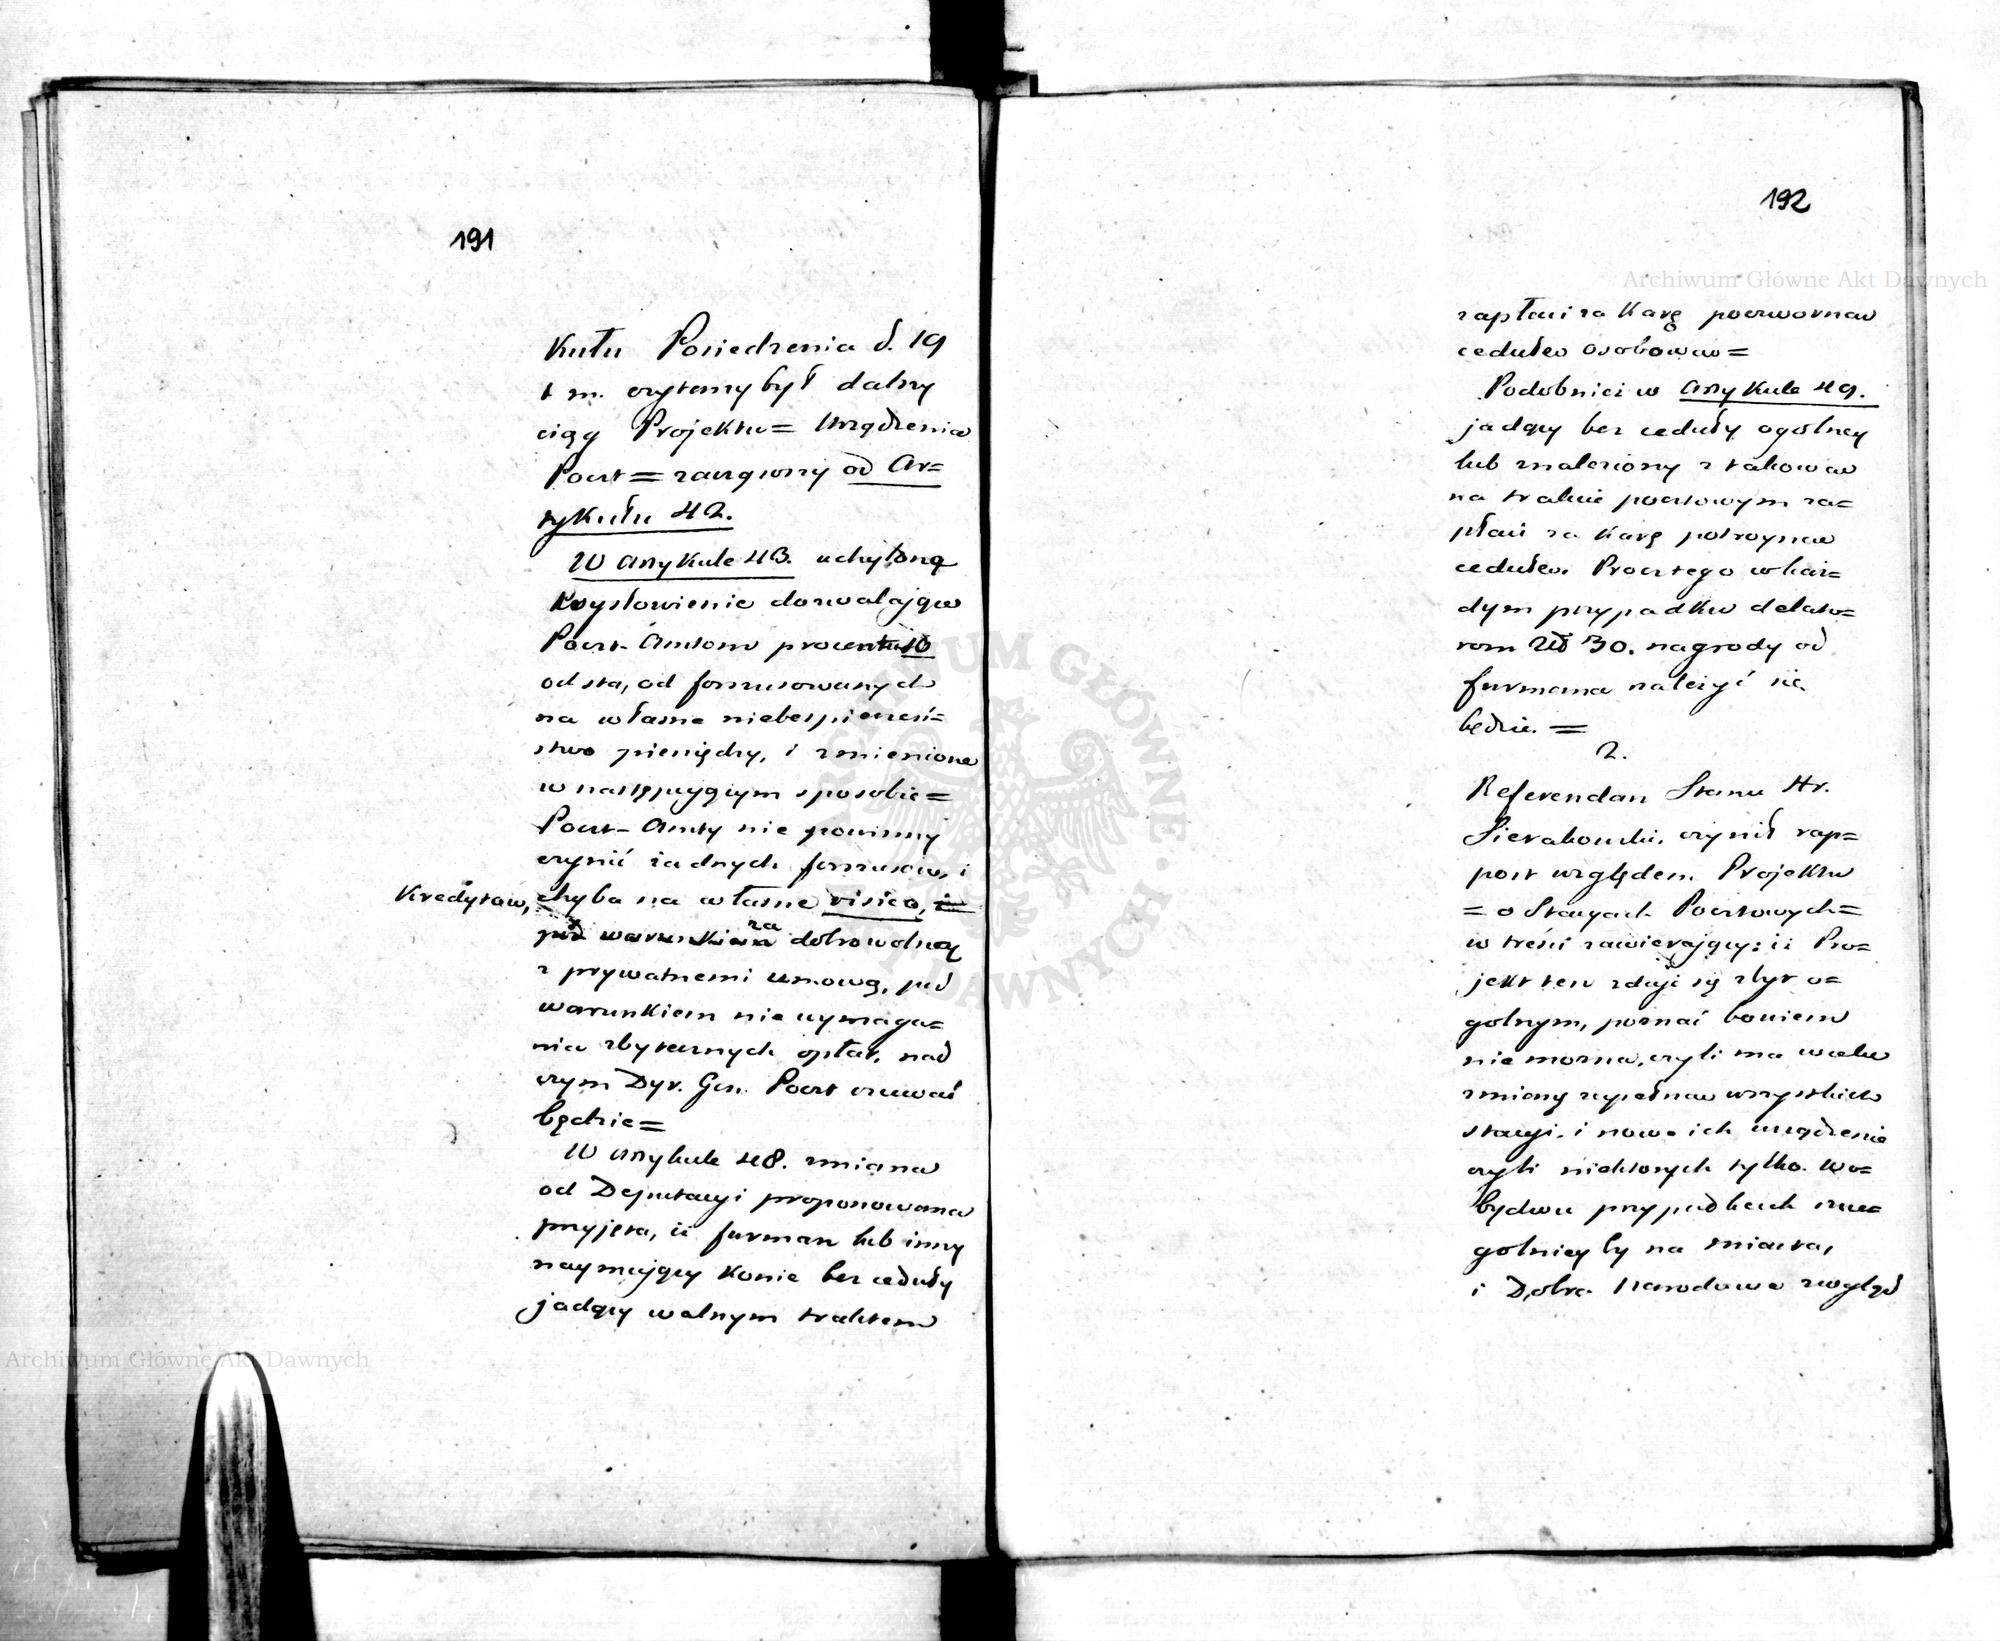 191
kułu Posiedzenia d. 19
t m. czytany był dalszy
ciąg Projektu = Urządzenia
Poczt = zaczęwszy od Ar=
tykułu 42.
W Artykule 43. uchyloną
dozwalające
Poczt-Amtom procentu 10
od sta, od forszusowanych
na własne niebezpieczeń=
stwo pieniędzy, i zmienione
w następującym sposobie =
Poczt-Amty nie powinny
czynić żadnych forszusów, i
Kredytów, chyba na własne risico, i=
pod warunkiem za dobrowolną
z prywatnemi umową, pod
warunkiem nie wymaga=
nia zbytecznych opłat, nad
czym Dyr. Gen. Poczt czuwać
będzie =
W Artykule 48. zmiana
od Deputacyi proponowana
przyjęta, iż furman lub inny
naymujący konie bez ceduły
jadący walnym traktem
192
zapłaci za karę poczwórną
cedułę osobową =
Podobnież w Artykule 49.
jadący bez ceduły ogólney
lub znaleziony z takową
na trakcie pocztowym za=
płaci za karę potróyną
cedułę. Procz tego w każ=
dym przypadku delato=
rom Zł 30. nagrody od
furmana należyć się
będzie. =
2.
Referendarz Stanu Hr.
Sierakowski, czynił rap=
port względem Projektu
= o Stacyach Pocztowych =
w treści zawierający: iż Pro=
jekt ten zdaje się zbyt o=
gólnym, poznać bowiem
nie można, czyli ma w celu
zmianę zupełną wszystkich
stacyi, i nowe ich urządzenie
czyli niektórych tylko. W o=
bydwu przypadkach szcze=
gólniey by na miasta,
i Dobra Narodowe wzgląd
Archiwum Główne Akt Dawnych
Archiwum Główne Akt Dawnych